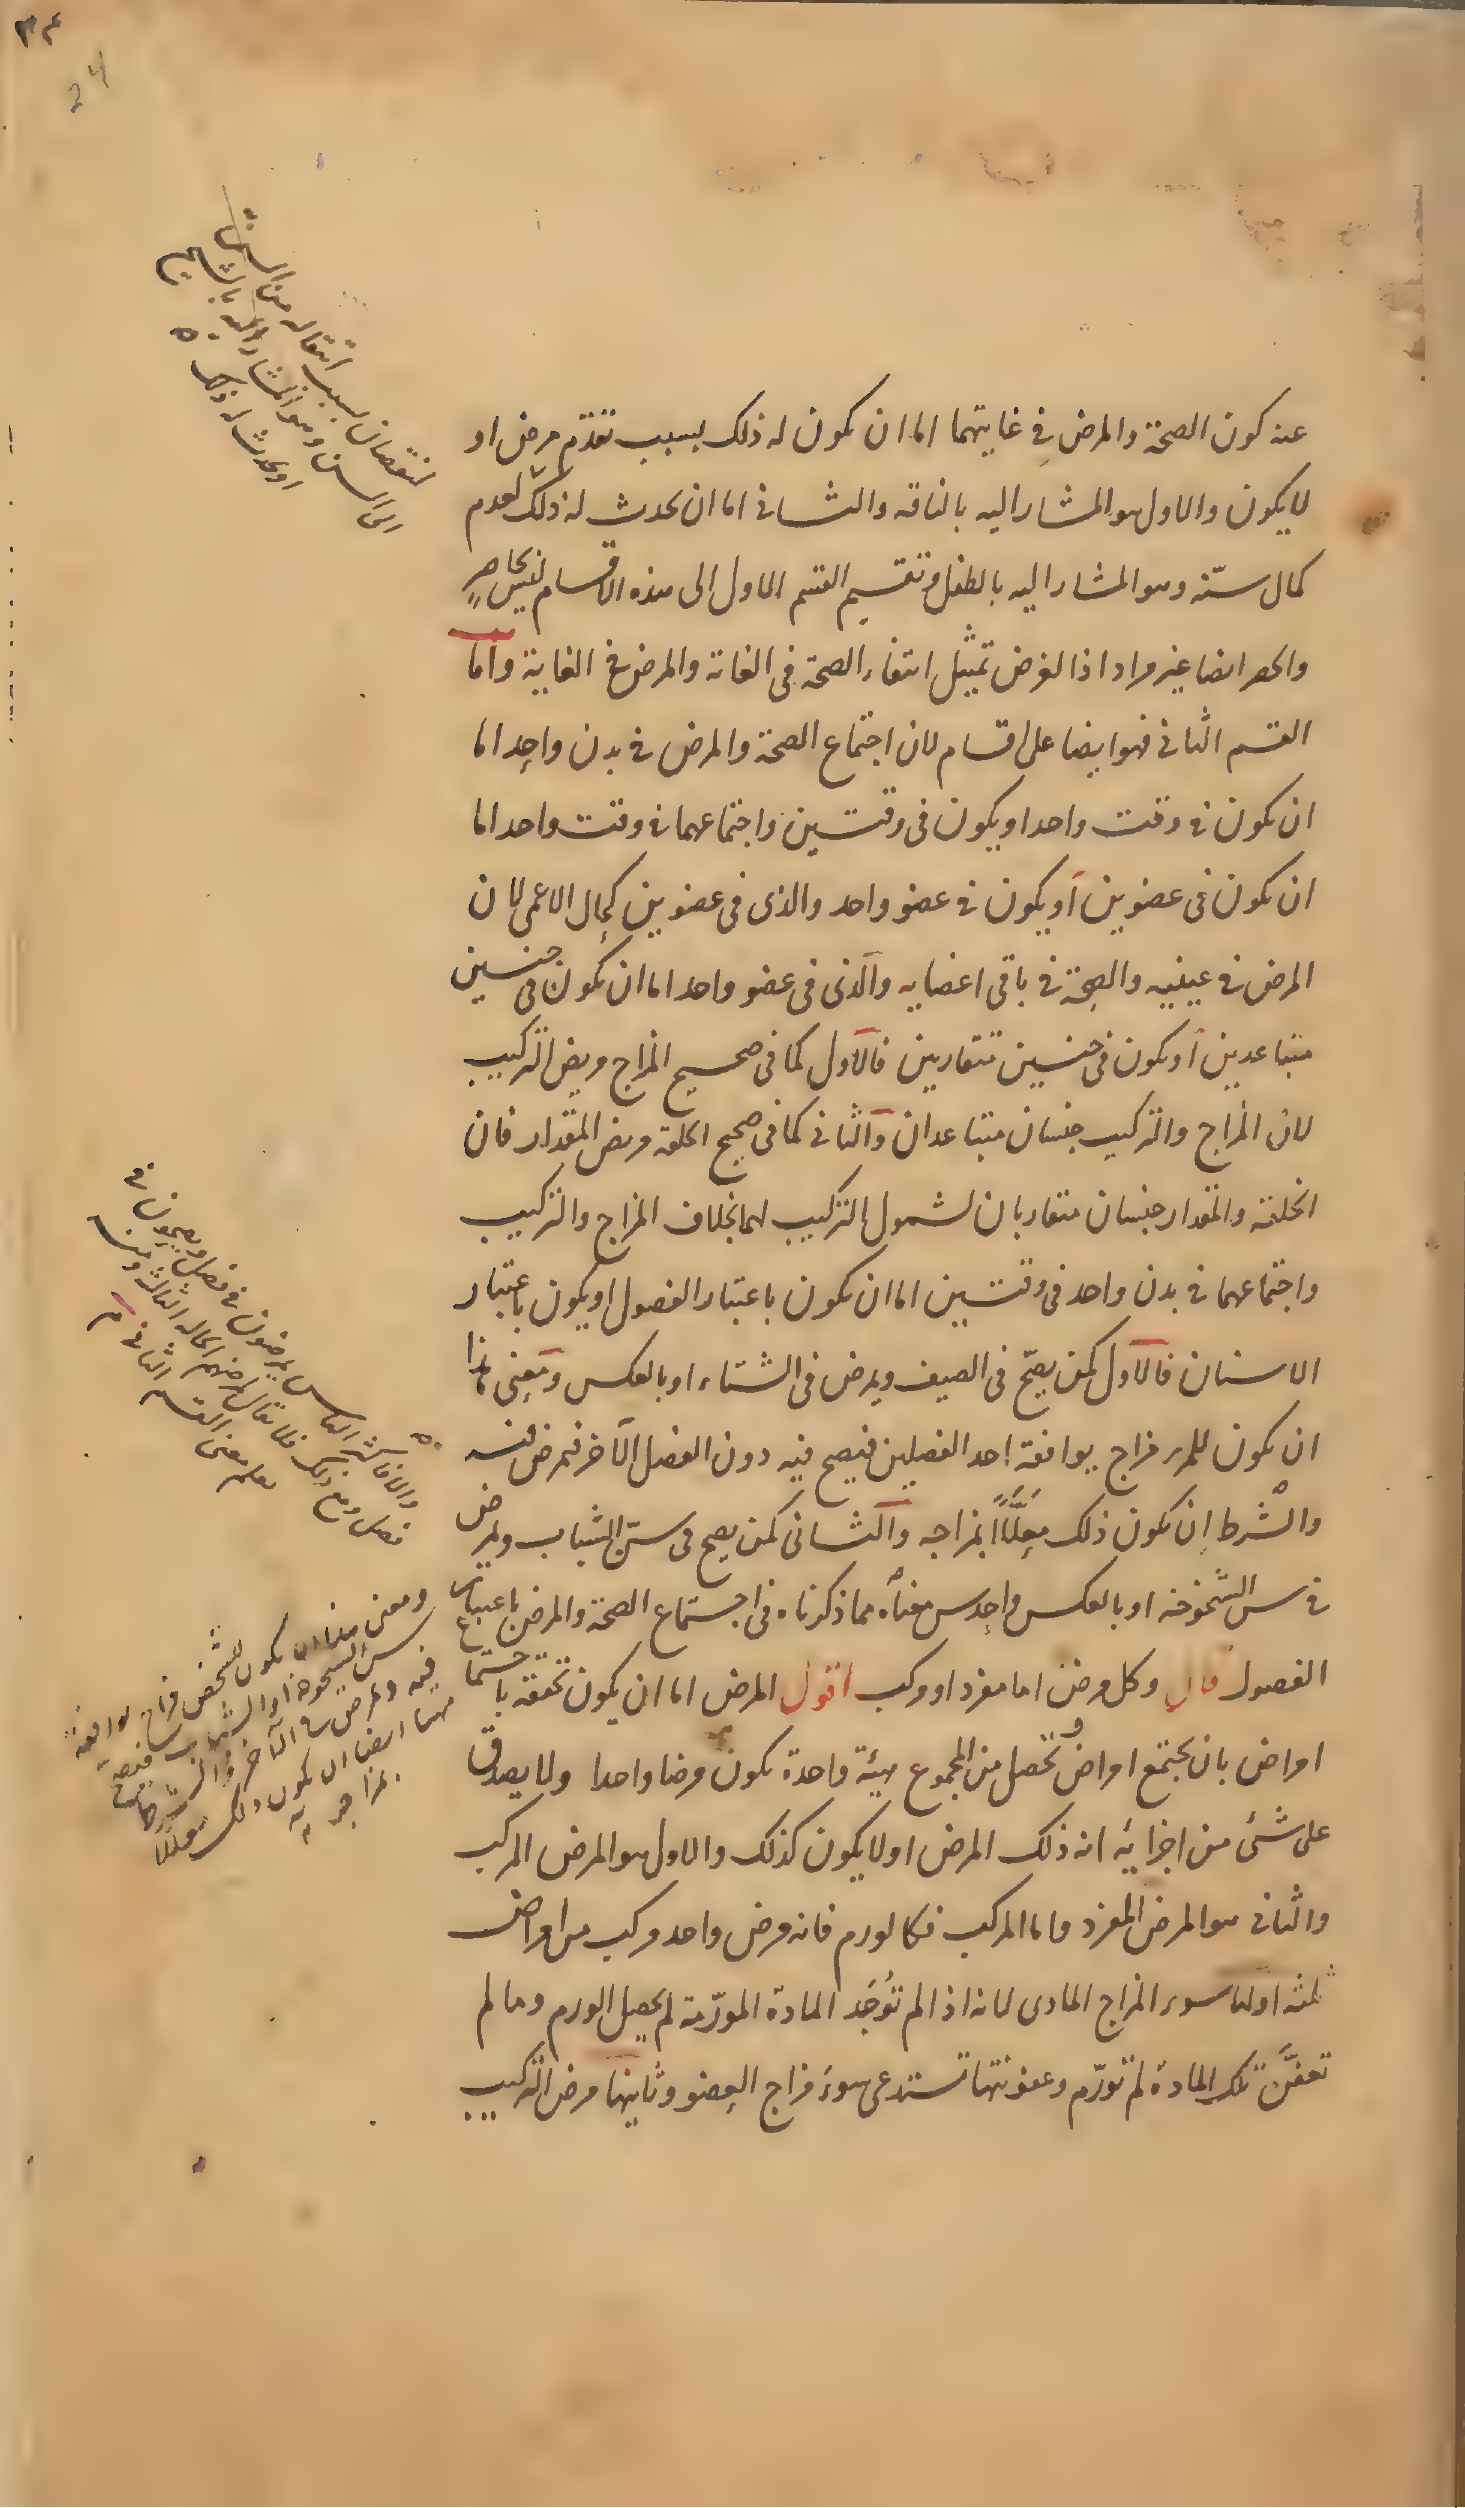 ٣٤
24
عنه كون الصحة والمرض فى غايتهما اما ان يكون له ذلك بسبب تقدّم مرض او
لا يكون والاول هو المشار اليه بالناقه والثانى اما ان يحدث له ذلك لعدم
كمال سنّه وهو المشار اليه بالطفل وتقسيم القسم الاول الى هذه الاقسام ليس بحاصرٍ
والحصر ايضا غير مراد اذا لغرض تمثيل انتفاء الصحة فى الغاية والمرض فى الغاية واما
القسم الثانى فهو ايضا على اقسام لان اجتماع الصحة والمرض فى بدن واحد اما
ان يكون فى وقت واحد او يكون فى وقتين واجتماعهما فى وقت واحد اما
ان يكون فى عضوين او يكون فى عضو واحد والذى فى عضوين كحال الاعمى لان
المرض فى عينيه والصحة فى باقى اعضايه والذى فى عضو واحد اما ان يكون فى جنسين
متباعدين او يكون فى جنسين متقاربين فالاول كما فى صحيح المزاج مريض التركيب
لان المزاج والتركيب جنسان متباعدان والثانى كما فى صحيح الخلقة مريض المقدار فان
الخلقة والمقدار جنسان متقاربان لشمول التركيب لهما بخلاف المزاج والتركيب
واجتماعهما فى بدن واحد فى وقتين اما ان يكون باعتبار الفصول او يكون باعتبار
الاسنان فالاول كمن يصحّ فى الصيف ويمرض فى الشتاء او بالعكس ومعنى هذا
ان يكون للمرء مزاج يوافقة احد الفصلين فيصح فيه دون الفصل الآخر فيمرض فيه
والشرط ان يكون ذلك معلَّلًا بمزاجه والثانى كمن يصح فى سنّ الشباب ويمرض
فى سن الشيخوخة او بالعكس واحدس معناه مما ذكرناه فى اجتماع الصحة والمرض باعتبار
الفصول قال وكل مرض اما مفرد او مركب اقول المرض اما ان يكون تحققه باجتماع
امراض بان يجتمع امراض وتحصل من المجموع هيئة واحدة يكون مرضا واحدا ولا يصدق
على شئ من اجزائه انه ذلك المرض او لا يكون كذلك والاول هو المرض المركب
والثانى هو المرض المفرد واما المركب فكالورم فانه مرض واحد مركب من امراض
ثلثة اولها سوء المزاج المادى لانه اذا لم تُوجَد المادة المورّمة لم يحصل الورم وما لم
تعفَّن تلك المادة لم تورّم وعفونتها تستدعى سوءَ مزاج العضو وثانيها مرض التركيب
لنقصان بسبب انتقاله من السن
الى السن وهو المشار اليه بالشيخ
او يحدث له ذلك
والا فاكثر الناس يمرضون فى فصل ويصحون فى
فصل ومع ذلك فلا يقال لمرضهم الحالة الثالثة ومنه
يعلم معنى القسم الثانى
ومعنى هذا ان يكون للشخص مزاج يوافقه
سن الشيخوخة او الشباب فيصح
فيه ويمرض فى الآخر والشرط
ههنا ايضا ان يكون ذلك معللا
بمزاجه